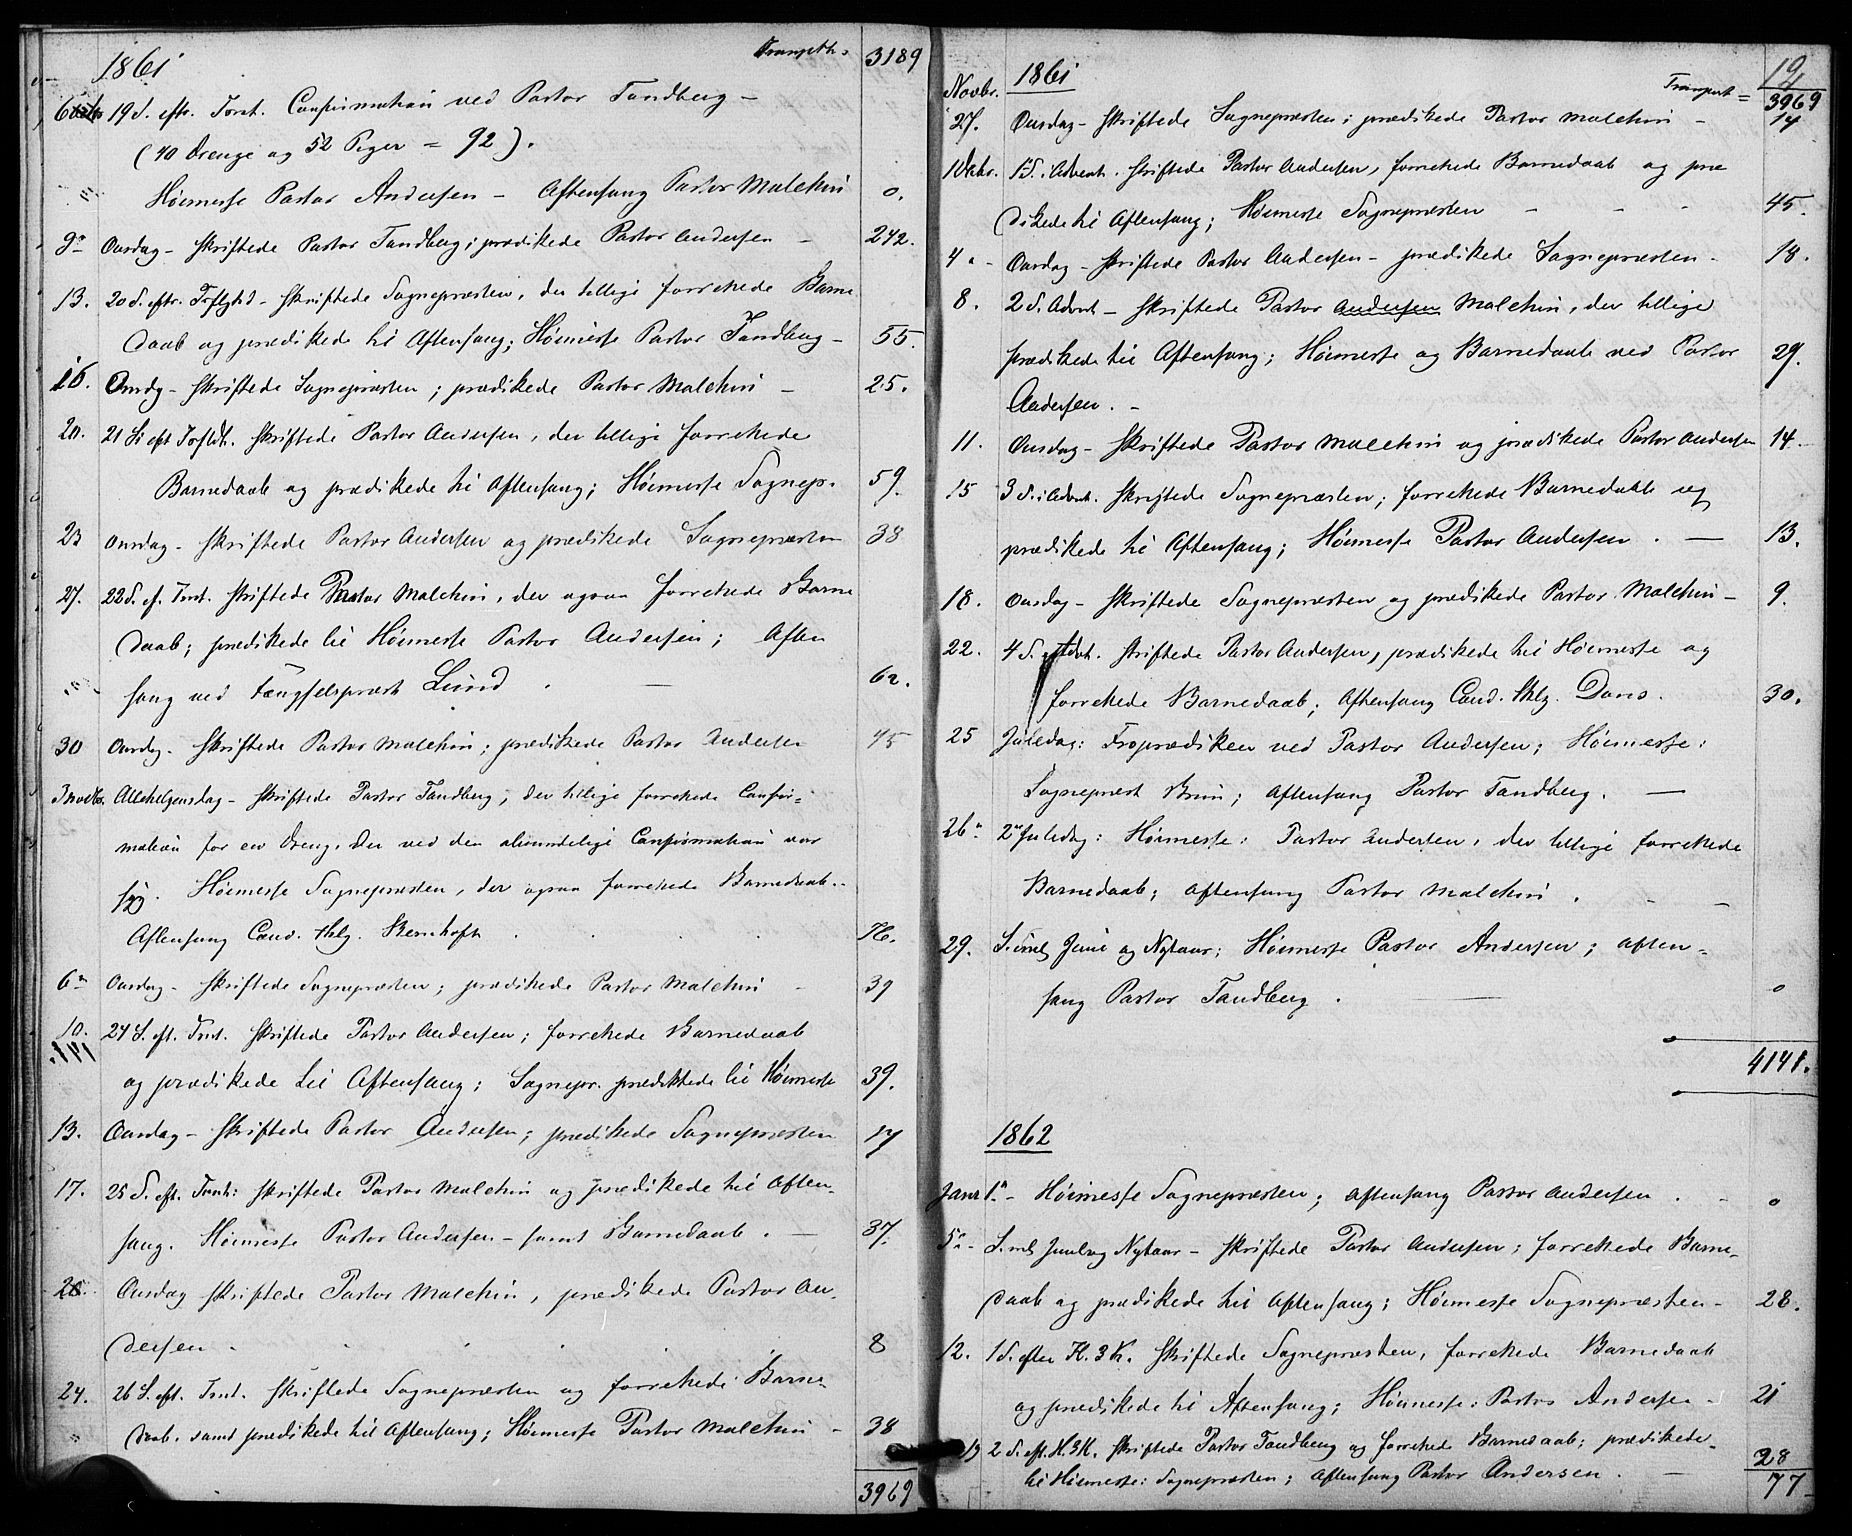 1861 Transpth. 3189
6 Octb. 19 S. eftr. Trnt. Confirmation ved Pastor Tandberg –
(40 Drenge og 52 Piger = 92).
Høimesse Pastor Andersen – Aftensang Pastor Malchin 0.
9. Onsdag – skriftede Pastor Tandberg; prædikede Pastor Andersen – 242.
13. 20 S. eftr. – skriftede Sognepræsten, der tillige forrettede Barne
daab og prædikede til Aftensang; Høimesse Pastor Tandberg – 55.
16. Onsdg – skriftede Sognepræsten; prædikede Pastor Malchin – 25.
20. 21 S. eft. skriftede Pastor Andersen, der tillige forrettede
Barnedaab og prædikede til Aftensang; Høimesse Sognepr. 59.
23 Onsdag – skriftede Pastor Andersen og prædikede Sognepræsten 38
27. 22 S. ef. Trnt. skriftede Pastor Malchin, der ogsaa forrettede Barne
daab; prædikede til Høimesse Pastor Andersen; Aften
sang ved Fængselspræst Lund . — 62.
30 Onsdag – skriftede Pastor Malchin; prædikede Pastor Andersen 45
3 Novbr. Allehelgensdag – skriftede Pastor Tandberg, der tillige forrettede Confir=
mation for en Dreng, der ved den almindelige Confirmation var
syg. Høimesse Sognepræsten, der ogsaa forrettede Barnedaab.
Aftensang Cand. thlg. 76.
6 Onsdag – skriftede Sognepræsten; prædikede Pastor Malchin – 39
10. 24 S. eft. Trnt. skriftede Pastor Andersen; forrettede Barnedaab
og prædikede til Aftensang; Sognepr. prædikede til Høimesse 39.
13. Onsdag – skriftede Pastor Andersen; prædikede Sognepræsten 17
17. 25 S. eft. Trnt: skriftede Pastor Malchin og prædikede til Aften-
sang. Høimesse Pastor Andersen – samt Barnedaab. — 37.
20. Onsdag skriftede Pastor Malchin, prædikede Pastor An-
dersen . 8
24. 26 S. eft. Trnt. skriftede Sognepræsten og forrettede Barne-
daab. samt prædikede til Aftensang; Høimesse Pastor Malchin – 38
3969
19
Novbr. 1861 Transport = 3969
27. Onsdag – skriftede Sognepræsten; prædikede Pastor Malchin – 14
1 Debr. 1 S. i Advent. skriftede Pastor Andersen, forrettede Barnedaab og præ
dikede til Aftensang; Høimesse Sognepræsten – – – 45.
4 Onsdag – skriftede Pastor Andersen – prædikede Sognepræsten – 18.
8. 2 S. i Advnt – skriftede Pastor Andersen Malchin, der tillige
prædikede til Aftensang; Høimesse og Barnedaab ved Pastor 29.
Andersen. –
11. Onsdag – skriftede Pastor Malchin og prædikede Pastor Andersen 14.
15 3 S. i Advnt. skriftede Sognepræsten; forrettede Barnedaab og
prædikede til Aftensang; Høimesse Pastor Andersen . — 13.
18. Onsdag – skriftede Sognepræsten og prædikede Pastor Malchin – 9.
22. 4 S. Advt. skriftede Pastor Andersen, prædikede til Høimesse og
forrettede Barnedaab; Aftensang Cand. thlg. 30.
25 Juledag: Froprædiken ved Pastor Andersen; Høimesse:
Sognepræst Brun; Aftensang Pastor Tandberg. —
26. 2 Juledag: Høimesse: Pastor Andersen, der tillige forrettede
Barnedaab; Aftensang Pastor Malchin . – –
29. S. Juul og Nytaar; Høimesse Pastor Andersen; Aften=
sang Pastor Tandberg . — 0
4141.
1862
Janr 1. – Høimesse Sognepræsten; Aftensang Pastor Andersen . – 0
5. – S. ml Juul og Nytaar – skriftede Pastor Andersen; forrettede Barne-
daab og prædikede til Aftensang; Høimesse Sognepræsten – 28.
12. 1 S. efter H. 3 K. skriftede Sognepræsten, forrettede Barnedaab
og prædikede til Aftensang; Høimesse: Pastor Andersen – 21
19 2 S. eft. H. 3 K. skriftede Pastor Tandberg og forrettede Barnedaab; prædikede
til Høimesse: Sognepræsten; Aftensang Pastor Andersen . — 28
77